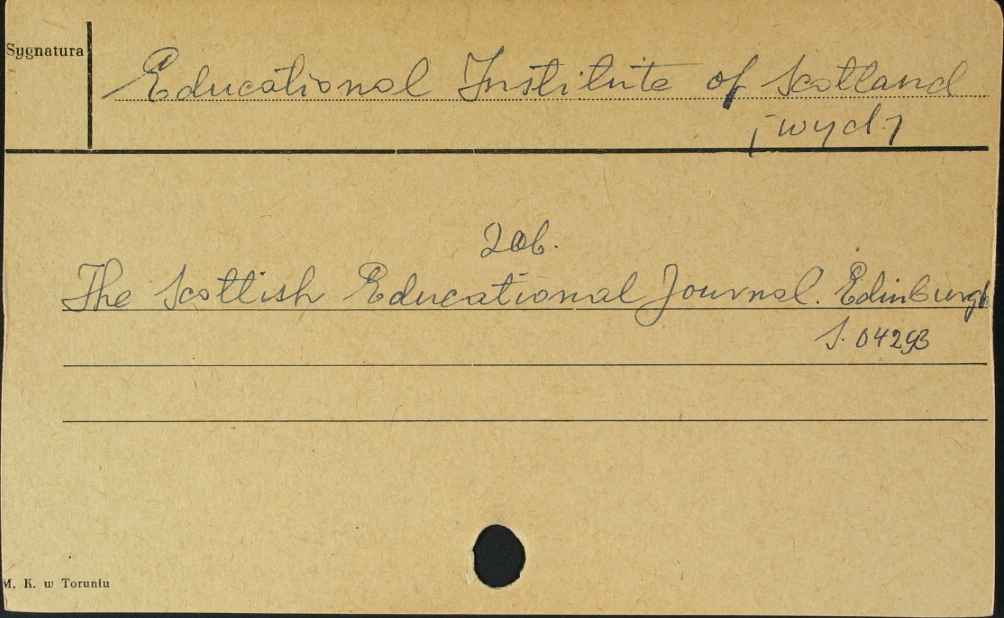 Sygnatura
Educational Institute of Scotland
[wyd.]
Zob.
The Scottish Educational Journal. Edinburgh
S. 04293
M. K. w Toruniu